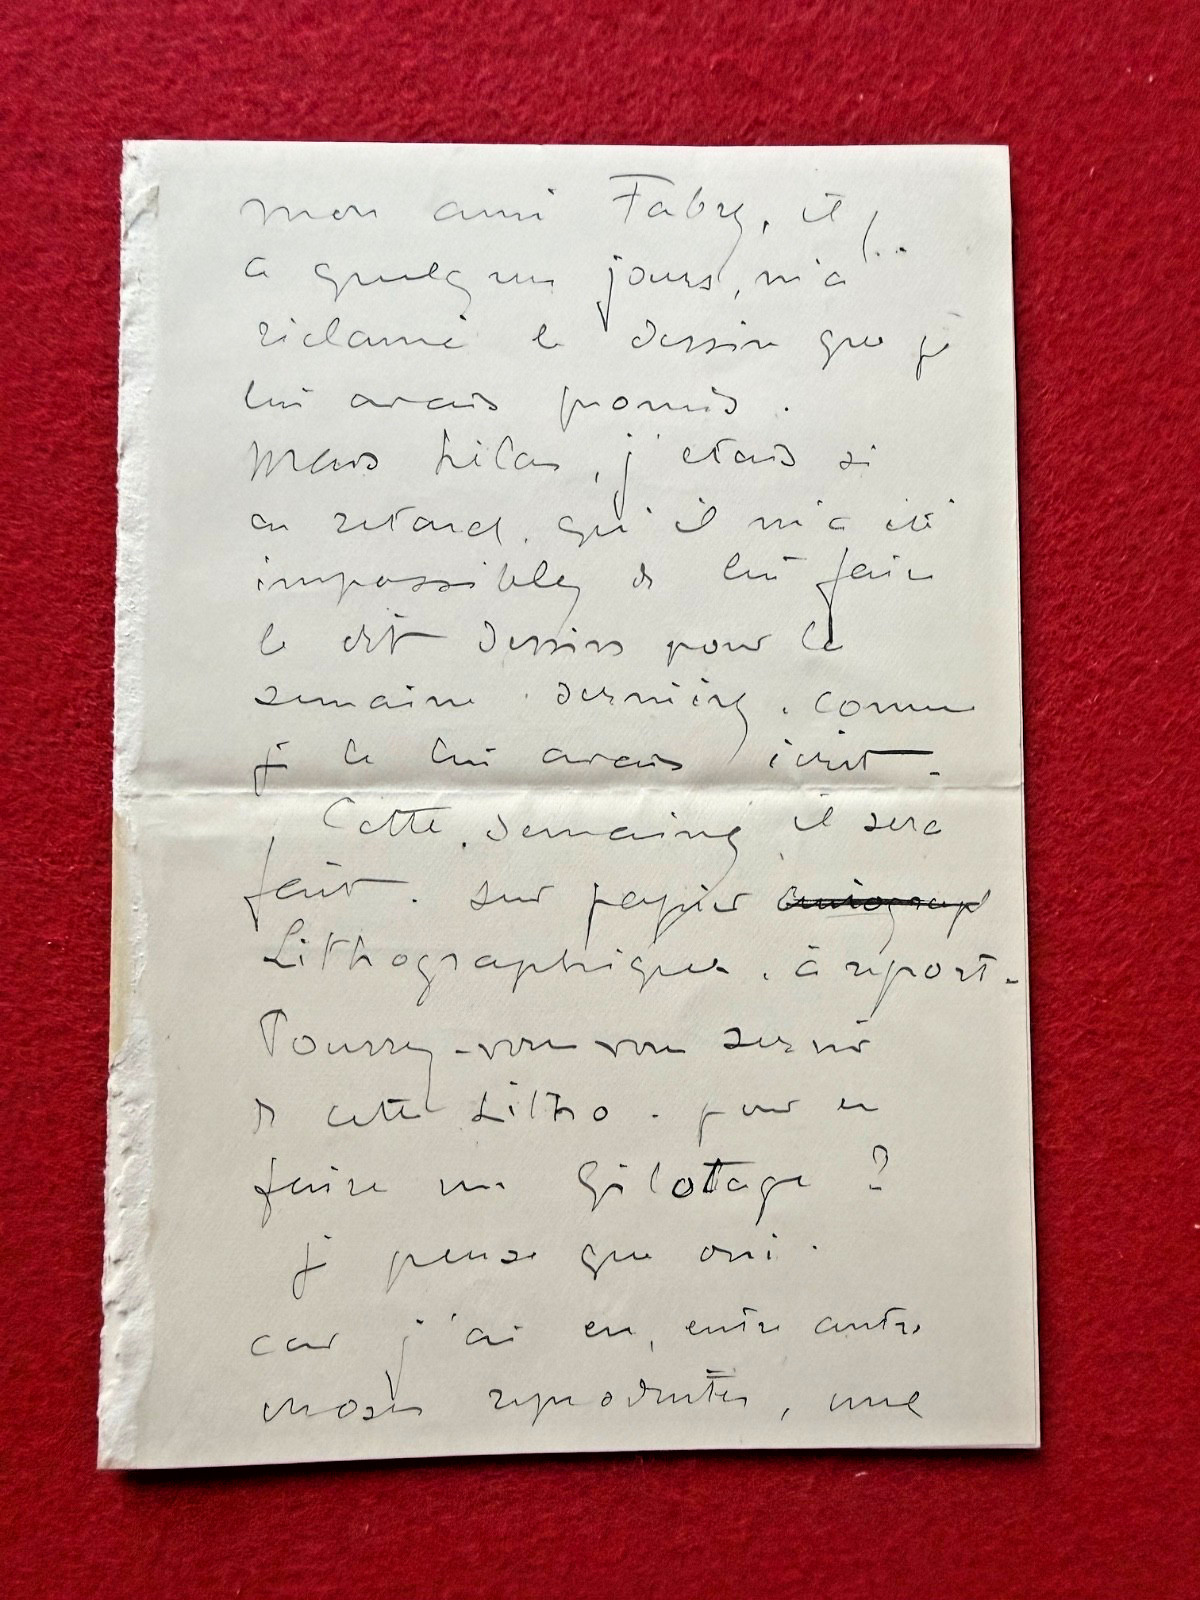 mon ami Fabry, il y
a quelques jours, m'a
réclamé le dessin que je
lui avais promis.
Mais hélas, j'étais si
en retard, qu'il m'a été
impossible de lui faire
le dit dessin pour la
semaine dernière, comme
je le lui avais écrit.
Cette semaine, il sera
fait. sur papier
Lithographique. à report.
Pourrez-vous vous servir
de cette Litho. pour en
faire un Gilotage ?
je pense que oui.
car j'ai eu, entre autres
choses reproduites, une